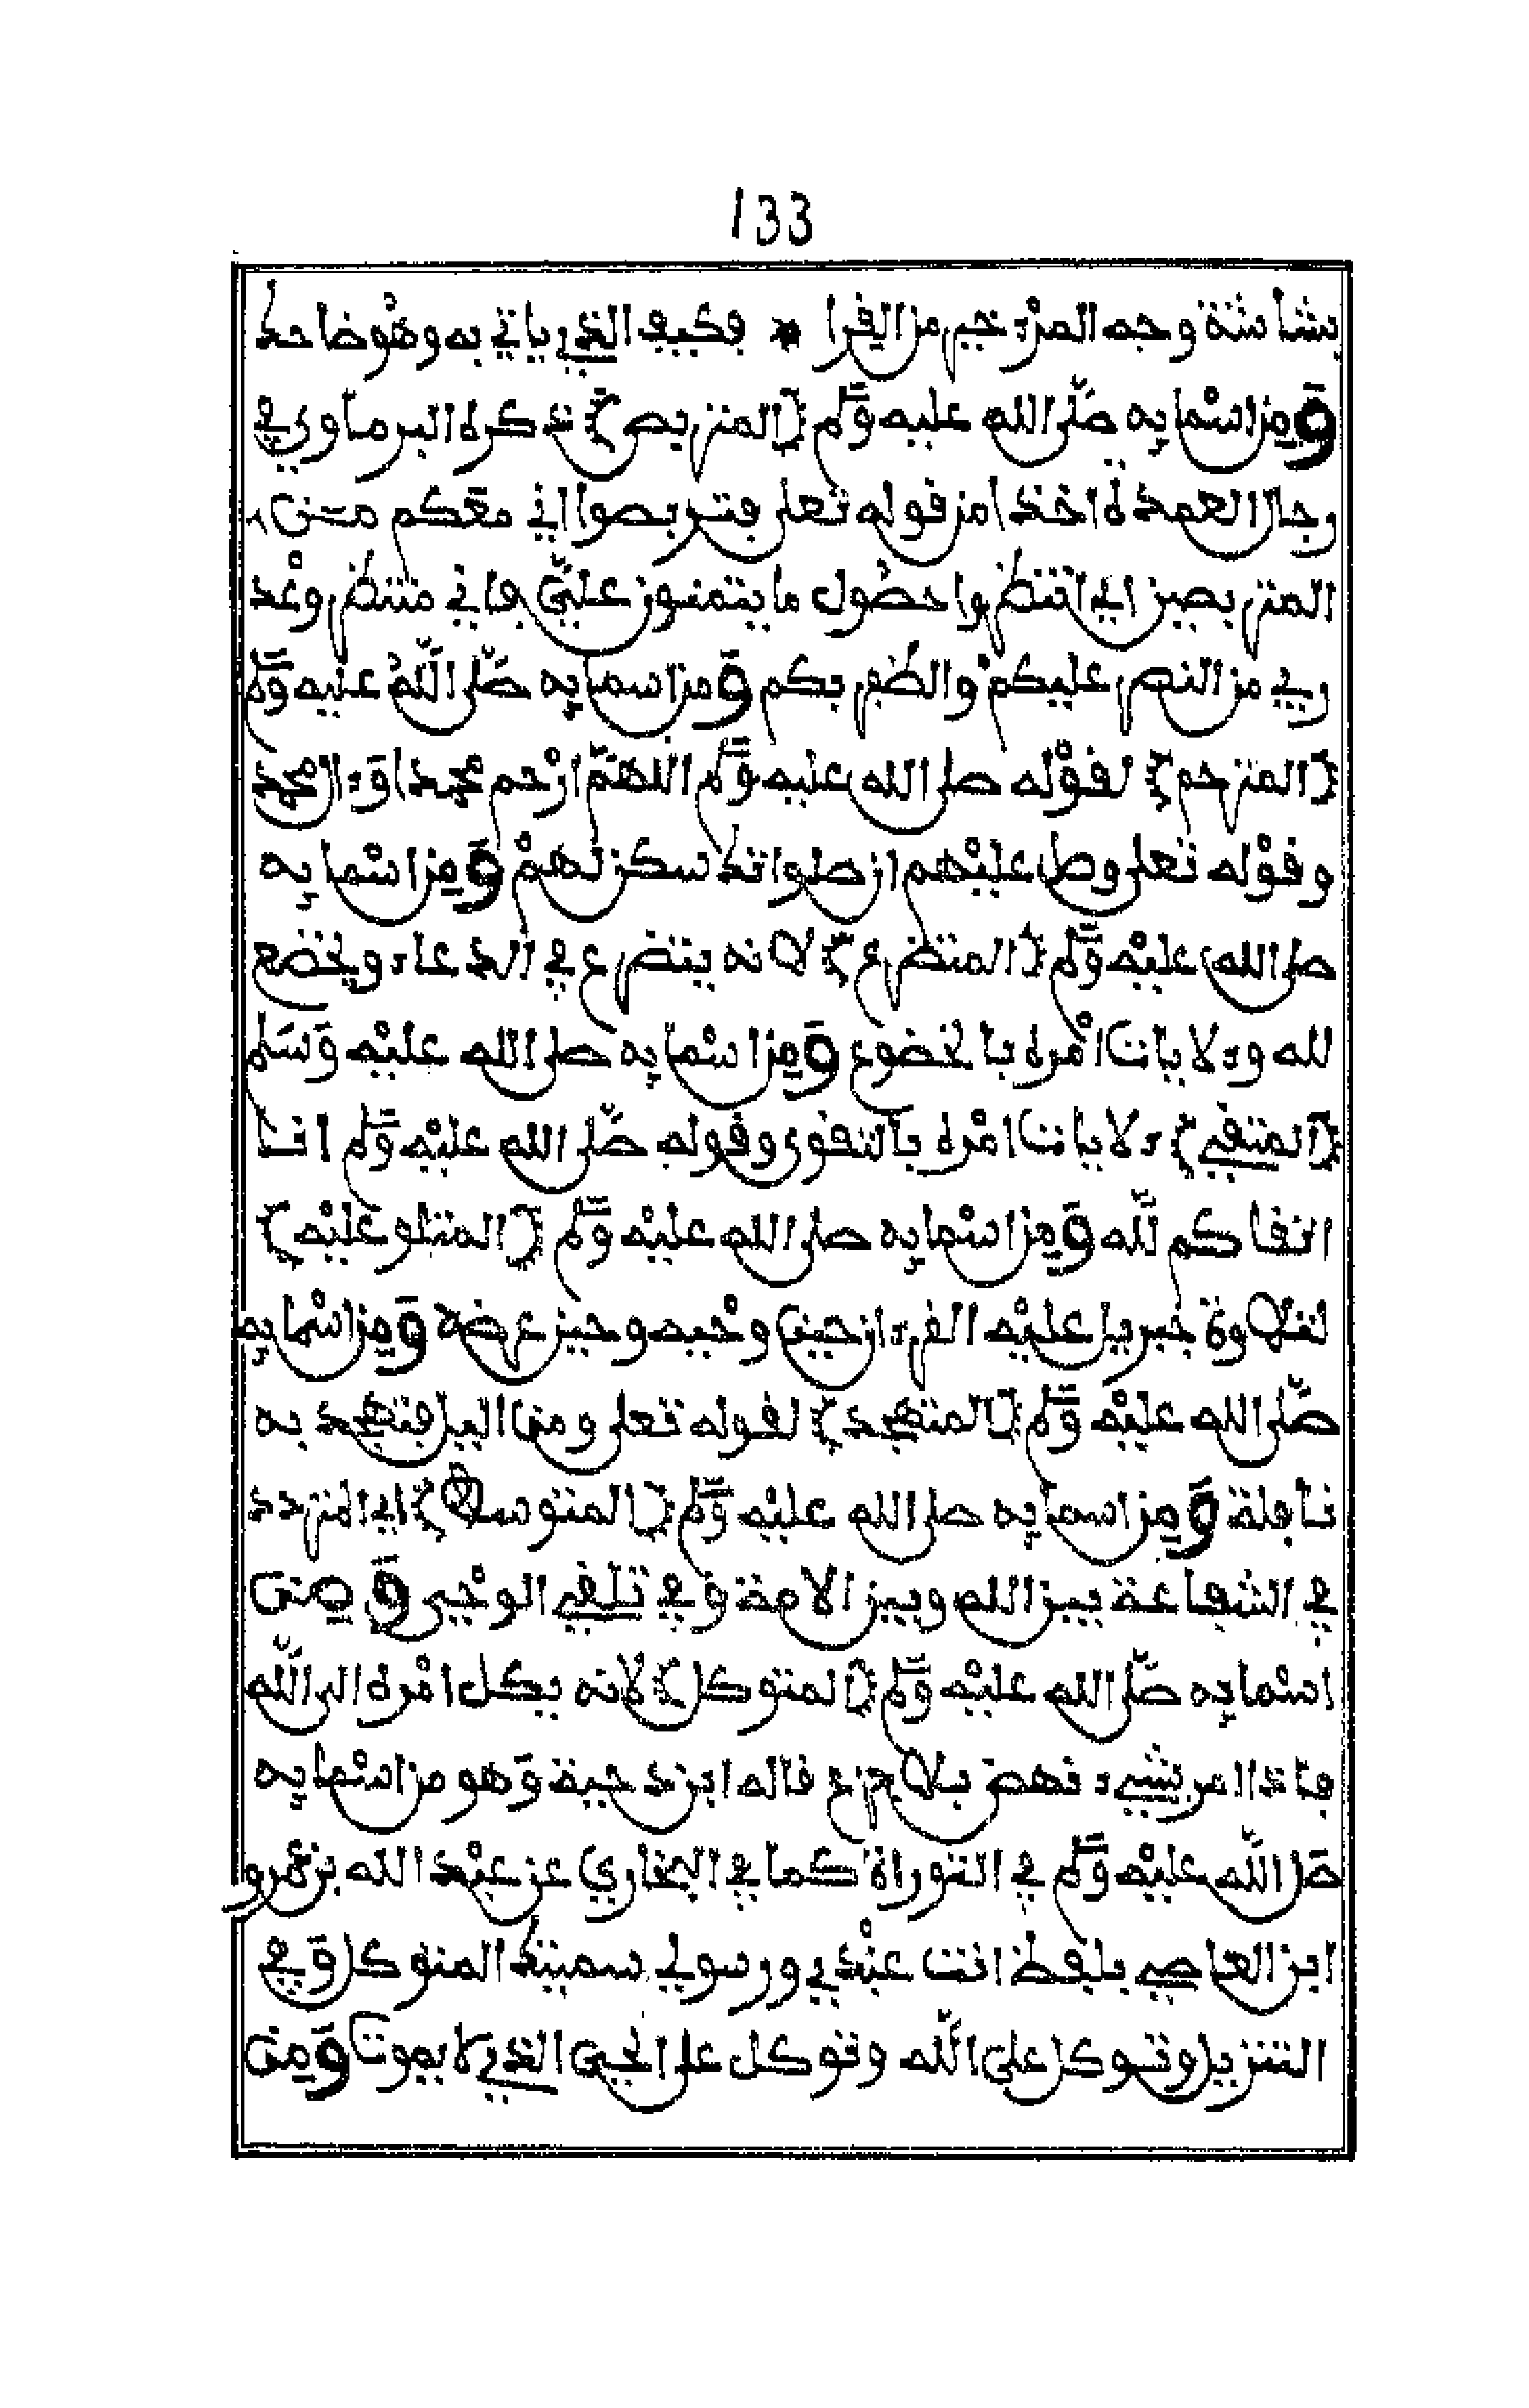 133
بشاشة وجه المرء خير من القرا * فكيف الذي ياتي به وهو ضاحك
ومن اسمايه صلى الله عليه وسلم {المتربص} ذكره البرماوي في
رجال العمدة اخذا من قوله تعلى فتربصوا اني معكم من
المتربصين اي انتظروا حصول ما يتمنون علي فاني منتظر وعد
ربي من النصر عليكم والظفر بكم ومن اسمايه صلى الله عليه وسلم
{المترحم} لقوله صلى الله عليه وسلم اللهم ارحم محمدا وءال محمد
وقوله تعلى وصل عليهم ان صلواتك سكن لهم ومن اسمايه
صلى الله عليه وسلم {المتضرع} لانه يتضرع في الدعاء ويخضع
لله وءلايات امره بالخضوع ومن اسمايه صلى الله عليه وسلم
{المتقي} ءلايات امره بالتقوى وقوله صلى الله عليه وسلم انا
اتقاكم لله ومن اسمايه صلى الله عليه وسلم {المتلو عليه}
لتلاوة جبريل عليه القرءان حين وحيه وحين عرضه ومن اسمايه
صلى الله عليه وسلم {المتهجد} لقوله تعلى ومن اليل فتهجد به
نافلة ومن اسمايه صلى الله عليه وسلم {المتوسل} اي المتردد
في الشفاعة بين الله وبين الامة وفي تلقي الوحي ومن
اسمايه صلى الله عليه وسلم {المتوكل} لانه يكل امره الى الله
فاذا امر بشيء نهض بلا جزع قاله ابن دحية وهو من اسمايه
صلى الله عليه وسلم في التوراة كما في البخاري عن عبد الله بن عمرو
ابن العاصي بلفظ انت عبدي ورسولي سميتك المتوكل وفي
التنزيل وتوكل على الله وتوكل على الحي الذي لا يموت ومن